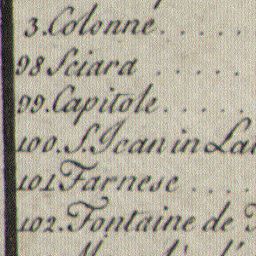 3. Colonne . . . . .
98 Sciara . . . . .
99. Capitole . . . . .
100. S. Jean in
101 Farnese . . . .
102. Fontaine de